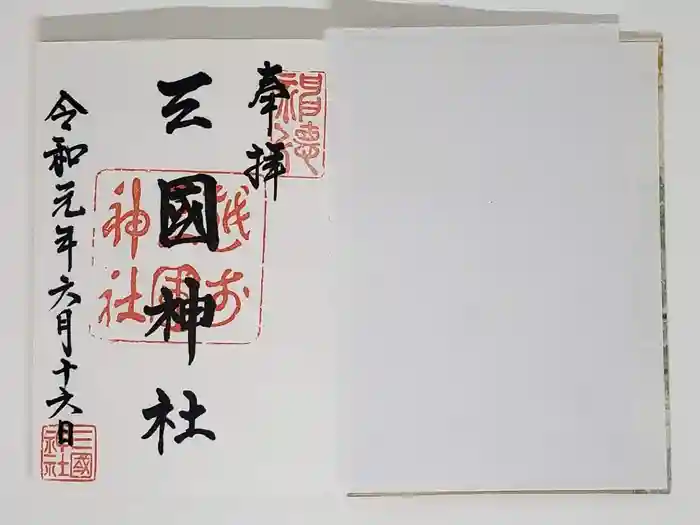 奉拝
三國神社
令和元年六月十六日
越前
三國
神社
三國
神社